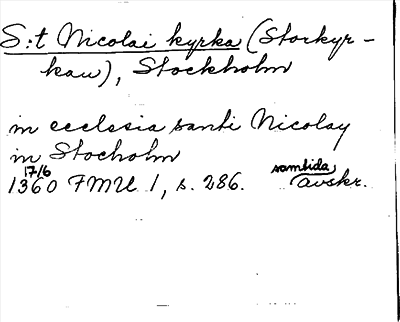 S:t Nicolai kyrka (Storkyr-
kan), Stockholm
in ecclesia santi Nicolay
in Stocholm
17/6 samtida
1360 FMU 1, s. 286. avskr.